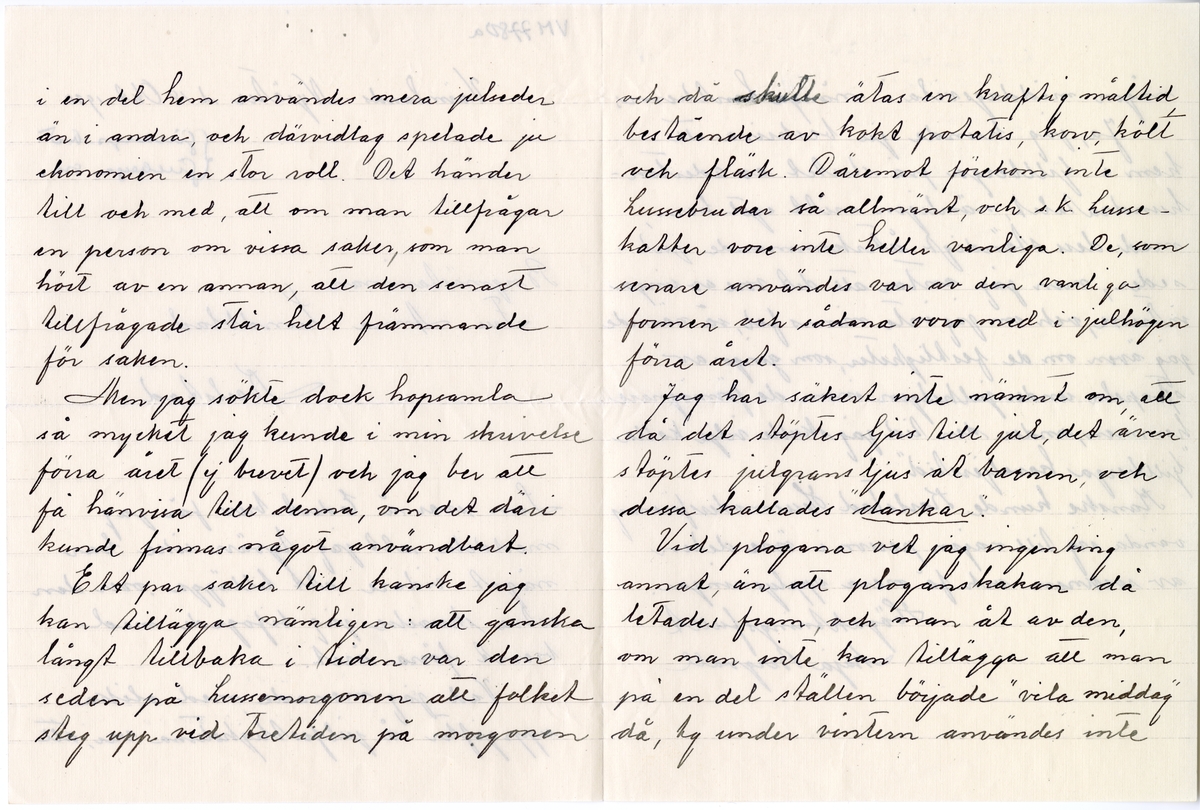 VM 7780a
i en del hem användes mera julseder
än i andra, och därvidlag spelade ju
ekonomien en stor roll. Det händer
till och med, att om man tillfrågar
en person om vissa saker, som man
hört av en annan, att den senast
tillfrågade står helt främmande
för saken.
Men jag sökte dock hopsamla
så mycket jag kunde i min skrivelse
förra året (ej brevet) och jag ber att
få hänvisa till denna, om det däri
kunde finnas något användbart.
Ett par saker till kanske jag
kan tillägga nämligen: att ganska
långt tillbaka i tiden var den
seden på hussemorgonen att folket
steg upp vid tretiden på morgonen
och då skulle ätas en kraftig måltid,
bestående av kokt potatis, korv, költ
och fläsk. Däremot förekom inte
hussebrudar så allmänt, och s.k. husse-
katter vore inte heller vanliga. De, som
senare användes var av den vanliga
formen och sådana voro med i julhögen
förra året.
Jag har säkert inte nämnt om, att
då det stöptes ljus till jul, det även
stöptes julgransljus åt barnen, och
dessa kallades "dankar".
Vid plogana vet jag ingenting
annat, än att ploganskakan då
letades fram, och man åt av den,
om man inte kan tillägga att man
på en del ställen började "vila middag"
då, ty under vintern användes inte